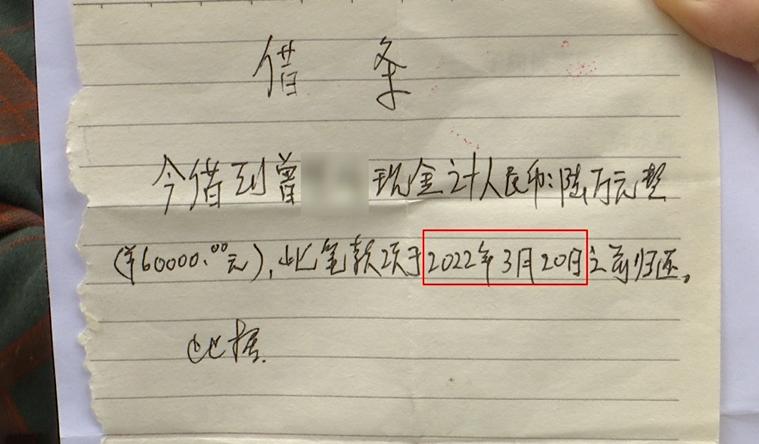 借 条
今借到曾 现金计人民币:陆万元整
(¥60000.00元),此笔款项于2022年3月20日之前归还。
此据.